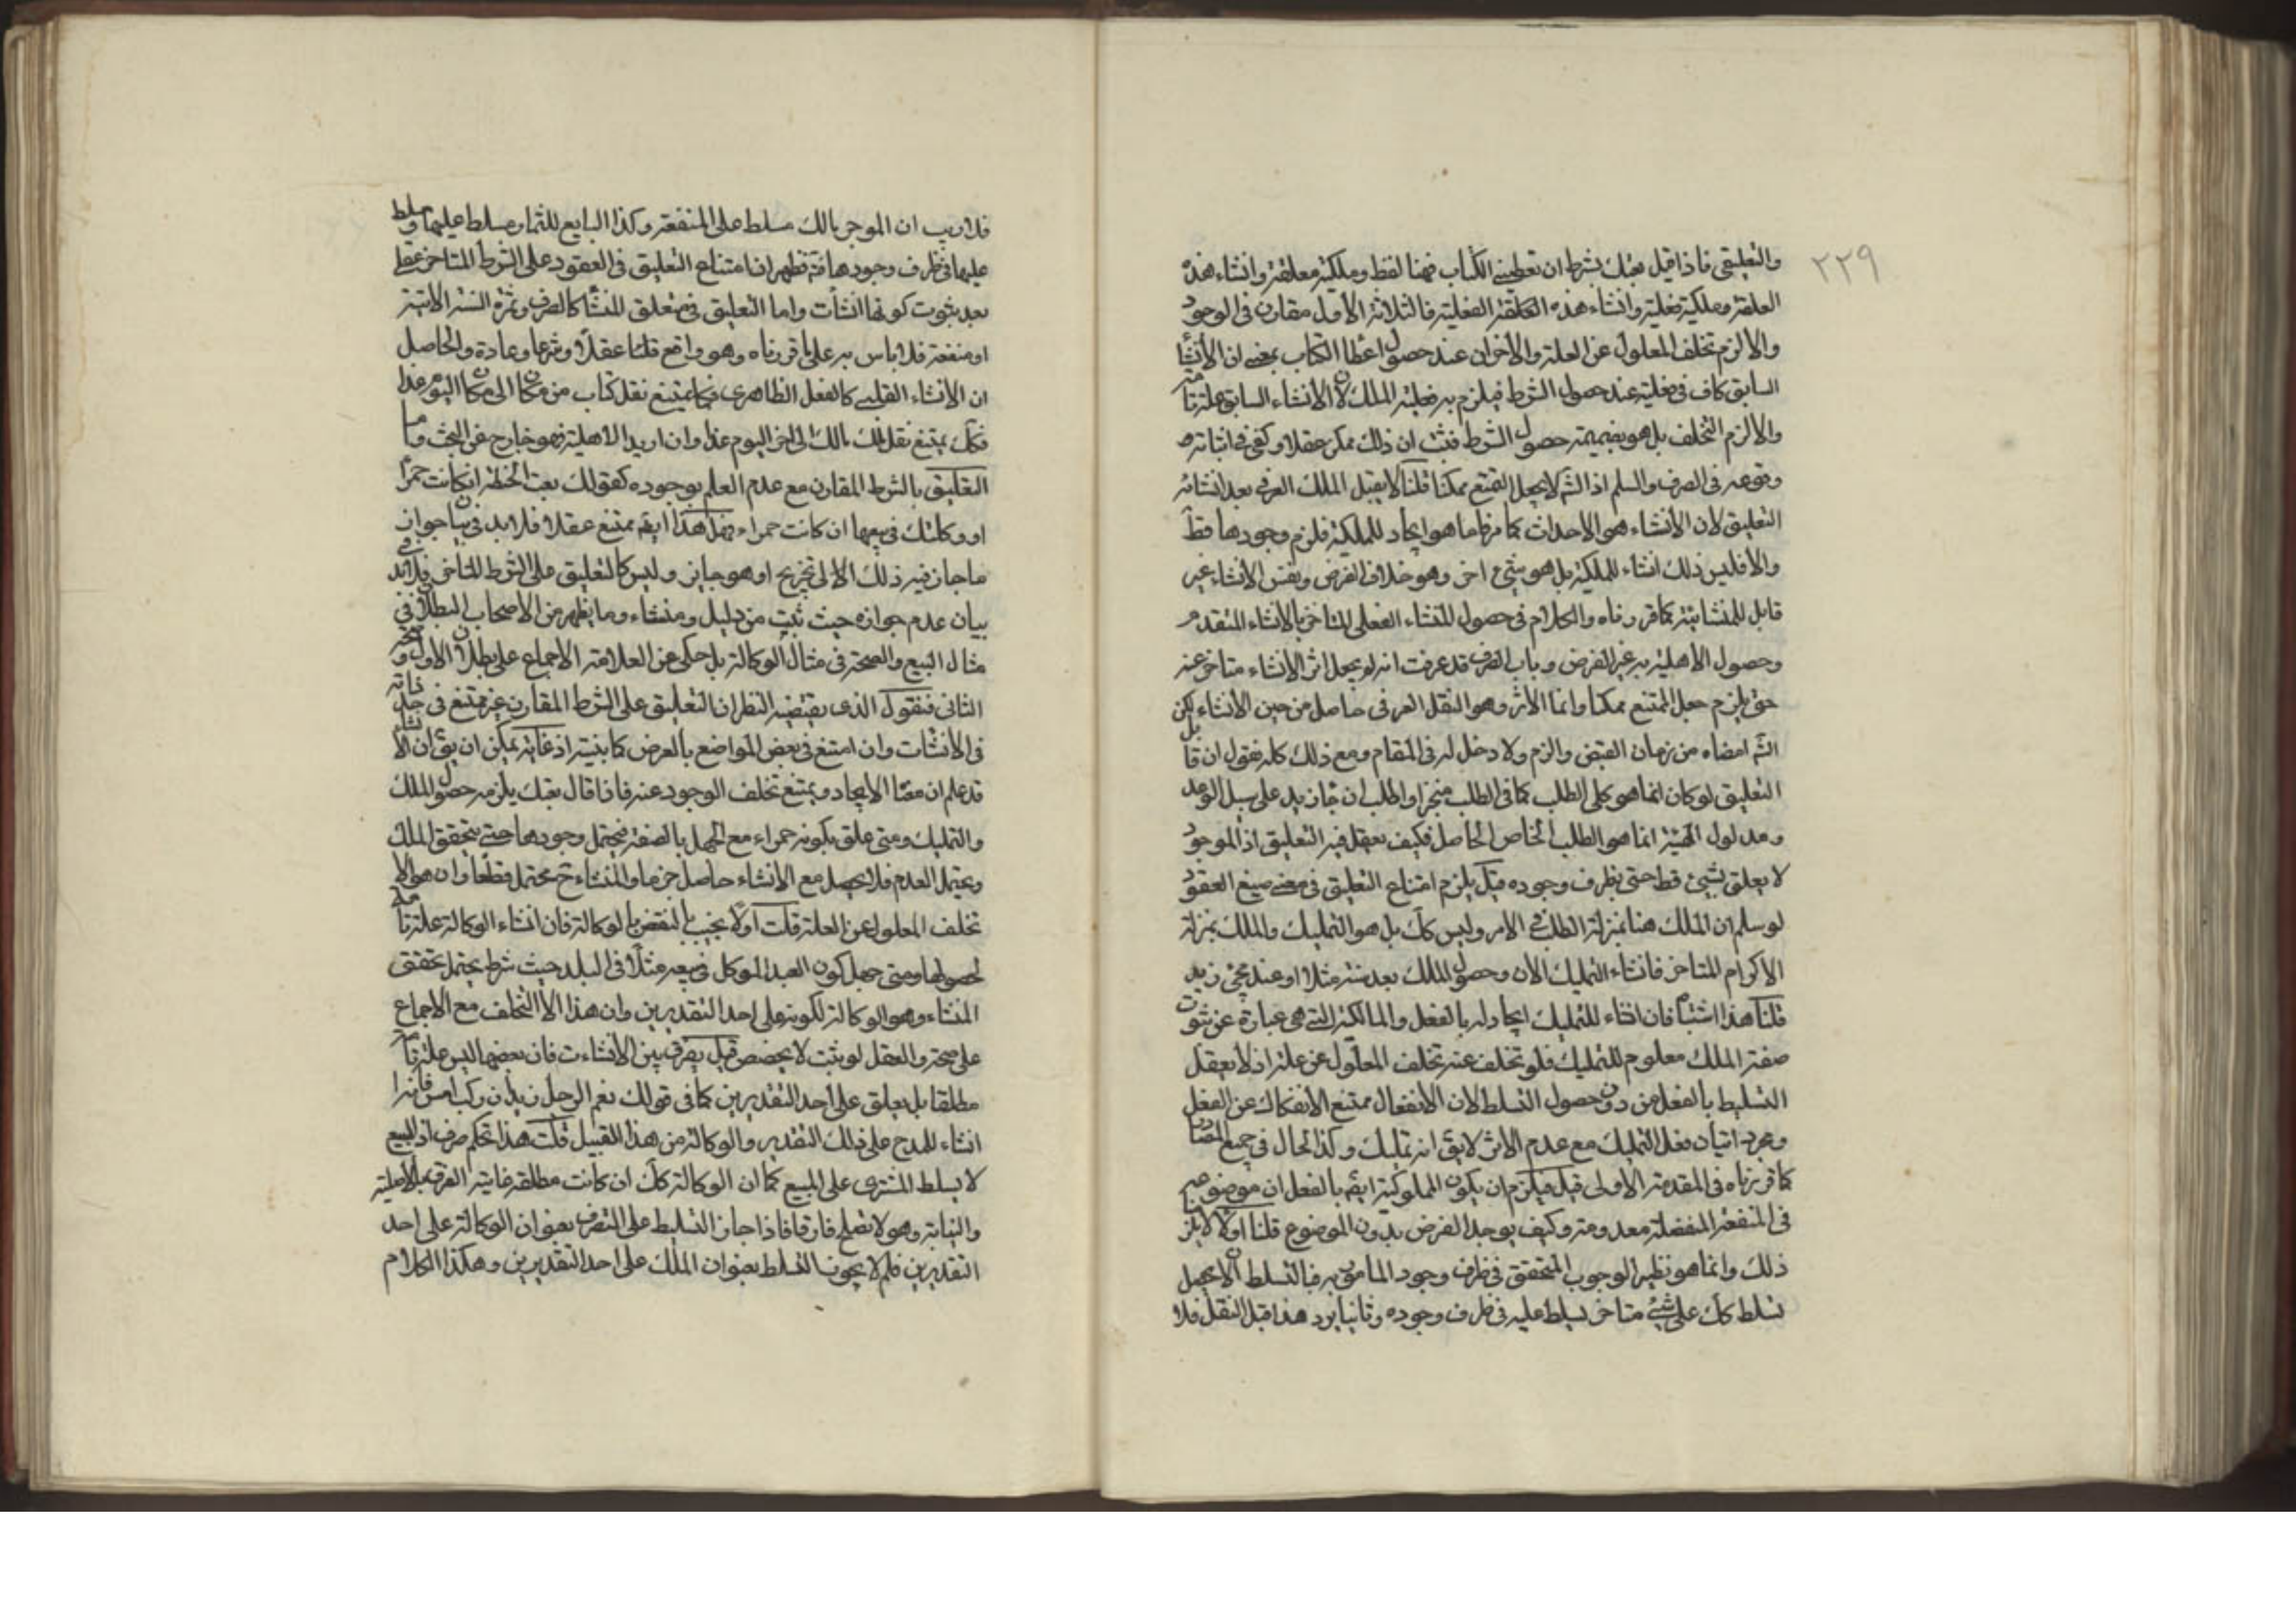 ٢٢٩
والتعليقى فاذا قيل بعتك بشرط ان تعطينى الكتاب فهنا لفظ وملكية معلقة وانشاء هذه
العلقة وملكية فعلية وانشاء هذه العلقة الفعلية فالثلاثة الأول مقارن فى الوجود
والا لزم تخلف المعلول عن العلة والاخران عند حصول اعطا الكتاب بمعنى ان الأنشا
السابق كاف فى فعليته عند حصول الشرط فيلزم به فعلية الملك لان الانشاء السابق علة تامة
والا لزم التخلف بل هو بضميمة حصول الشرط فثبت ان ذلك ممكن عقلا وكفى فى اثباته
وقوعه فى الصرف والسلم اذ الشرع لا يجعل الممتنع ممكنا قلنا لا يقبل الملك العرفى بعد انشائه
التعليق لان الأنشاء هو الاحداث كما مر فاما هو ايجاد للملكية فلزم وجودها قط
والا فليس ذلك انشاء للملكية بل هو شىء اخر وهو خلاف الفرض ونفس الأنشاء غير
قابل للمنشائية كما قررناه والكلام فى حصول المنشاء الفعلى المتاخر بالانشاء المتقدم
وحصول الاهلية به غير الفرض وباب الصرف قد عرفت انه لم يجعل اثر الانشاء متاخر عنه
حتى يلزم جعل الممتنع ممكنا وانما الأثر وهو النقل العرفى حاصل من حين الانشاء لكن
الشرع امضاه من زمان القبض والزم ولا دخل له فى المقام ومع ذلك كله فنقول ان قابل
التعليق لو كان انما هو كلى الطلب كما فى اطلب منجزا واطلب ان جاء زيد على سبيل الوعد
ومدلول الهيئة انما هو الطلب الخاص الحاصل فكيف يعقل فيه التعليق اذ الموجود
لا يعلق بشىء قط حتى بظرف وجوده قيل يلزم امتناع التعليق فى معنى صيغ العقود
لو سلم ان الملك هنا بمنزلة الطلب فى الامر وليس كك بل هو التمليك والملك بمنزلة
الاكرام المتاخر فانشاء التمليك الان وحصول الملك بعد سنة مثلا او عند مجئ زيد
قلنا هذا اشتباه فان انشاء للتمليك ايجاد له بالفعل والمالكية التى هى عبارة عن ثبوت
صفة الملك معلوم للتمليك فلو تخلف عنه تخلف المعلول عن علته اذ لا يعقل
التسليط بالفعل من دون حصول التسلط لان الانفعال ممتنع الانفكاك عن الفعل
ومجرد اتيان فعل التمليك مع عدم الاثر لا يق انه تمليك وكذا الحال فى جميع المصادر
كما قررناه فى المقدمة الاولى قيل فيلزم ان يكون المملوكية ايضا بالفعل ان موضوعه
فى المنفعة المنفصلة معدومة وكيف يوجد العرض بدون الموضوع قلنا اولا لا يلزم
ذلك وانما هو نظير الوجوب المتحقق فى ظرف وجود المامور به فالتسلط الان يحصل
تسلط كك على شىء متاخر يسلط عليه فى ظرف وجوده وثانيا يرد هذا قبل النقل فلا
فلا ريب ان الموجر مالك مسلط على المنفعة وكذا البايع للثمار مسلط عليها وسلط
عليها فى ظرف وجودها فتم فظهر ان امتناع التعليق فى العقود على الشرط المتاخر عقلى
بعد ثبوت كونها انشأت واما التعليق فى متعلق المنشأ كالصرف وثمرة السنة الاتية
او منفعة فلا باس به على ما قررناه وهو واقع قلنا عقلا وشرعا وعادة والحاصل
ان الانشاء القلبى كالفعل الظاهرى فكما يمتنع نقل كتاب من مكان الى مكان اليوم غدا
فكك يمتنع نقل ملك مالك الى اخر اليوم غدا وان اريد الاهلية فهو خارج عن البحث واما
التعليق بالشرط المقارن مع عدم العلم بوجوده كقولك بعت الحنطة ان كانت حمراء
او وكلتك فى بيعها ان كانت حمراء فهل هذا ايضا ممتنع عقلا فلا بد فى بيان جواز
ما جاز فيه ذلك الا الى تخريج او هو جايز وليس كالتعليق على الشرط المتاخر فلا بد فى
بيان عدم جوازه حيث ثبت من دليل ومنشاء وما يظهر من الاصحاب البطلان فى
مثال البيع والصحة فى مثال الوكالة بل حكى عن العلامة الاجماع على بطلان الاول وصحة
الثانى فنقول الذى يقتضيه النظر ان التعليق على الشرط المقارن غير ممتنع فى حد ذاته
فى الانشات وان امتنع فى بعض المواضع بالعرض كما بنيته اذ غايته يمكن ان يق ان الانشاء
قد علم ان معناه الايجاد ويمتنع تخلف الوجود عنه فاذا قال بعتك يلزمه حصول الملك
والتمليك ومتى علق بكونه حمراء مع الجهل بالصفة يحتمل وجودها حتى يتحقق الملك
ويحتمل العدم فلا يحصل مع الانشاء حاصل جزما والمنشاء ح محتمل قطعا وان هو الا
تخلف المعلول عن العلة قلت اولا نجيب بالنقض بالوكالة فان انشاء الوكالة علة تامة
لحصولها ومتى جعل كون العبد الموكل فى بيعه مثلا فى البلد حيث شرط يحتمل تحقق
المنشاء وهو الوكالة لكونه على احد التقديرين وان هذا الا التخلف مع الاجماع
على صحته والعقل لو ثبت لا يخصص قيل يفرق بين الأنشاءت فان بعضها ليس علة تامة
مطلقا بل يعلق على احد التقديرين كما فى قولك نعم الرجل زيد ان ركب امس فانه
انشاء للمدح على ذلك التقدير والوكالة من هذا القبيل قلت هذا تحكم صرف اذ البيع
لا يسلط المشترى على المبيع كما ان الوكالة كك ان كانت مطلقة غايته الفرق بالاصلية
والنيابة وهو لا يصلح فارقا فاذا جاز التسليط على التصرف بعنوان الوكالة على احد
التقديرين فلم لا يجوز التسلط بعنوان الملك على احد التقديرين وهكذا الكلام